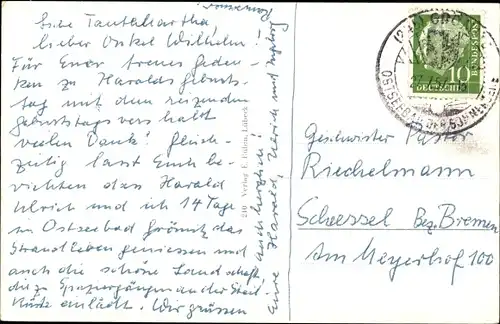 Liebe Tante Martha!
Lieber Onkel Wilhelm!
Für Euer treues Geden-
ken zu Haralds Geburts-
tag mit dem reizenden
Geburtstagsvers habt
vielen Dank! Gleich-
zeitig lasst Euch be-
richten dass Harald
Ulrich und ich 14 Tage
im Ostseebad Grömitz das
Strandleben geniessen und
auch die schöne Landschaft,
die zu Spaziergängen an der Steil-
küste einlädt. Wir grüssen
Euch herzlich!
Eure Harald, Ulrich und
210 Verlag E. Lübeck
10
DEUTSCHE
BUNDESPOST
OSTSEEBAD DER SONNENSEITE
Geschwister Pastor
Riechelmann
Scheessel Bez. Bremen
Am Meyerhof 100